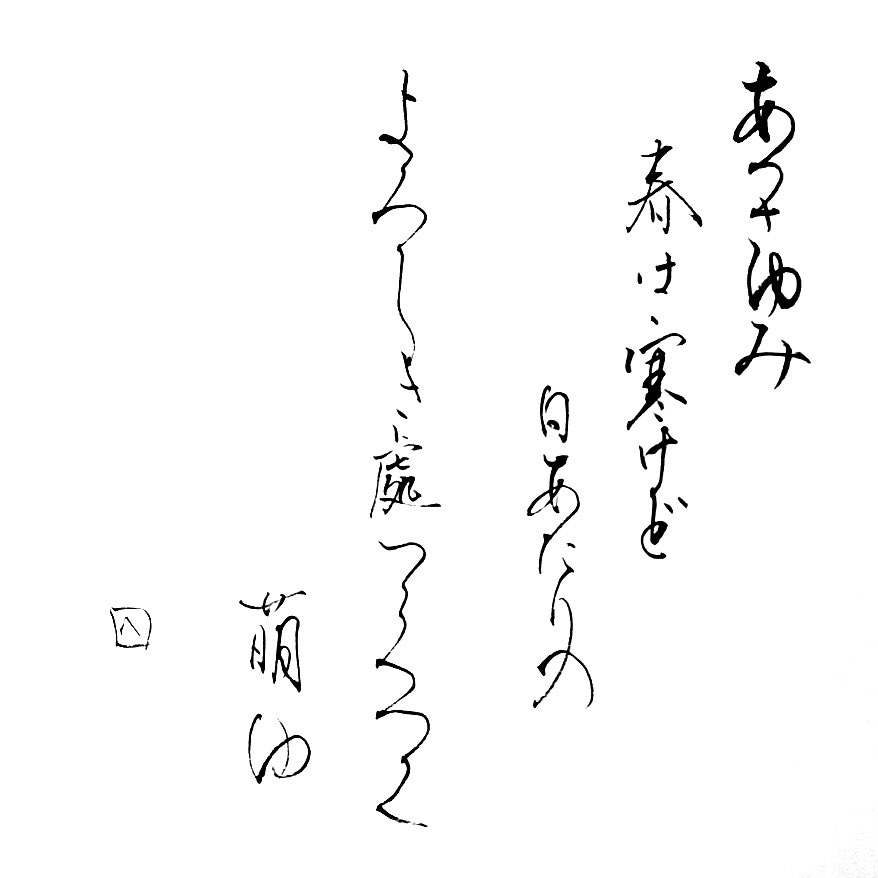 あつさゆみ
春は寒けど
日あたりの
よろしき處つくつくし
萌ゆ